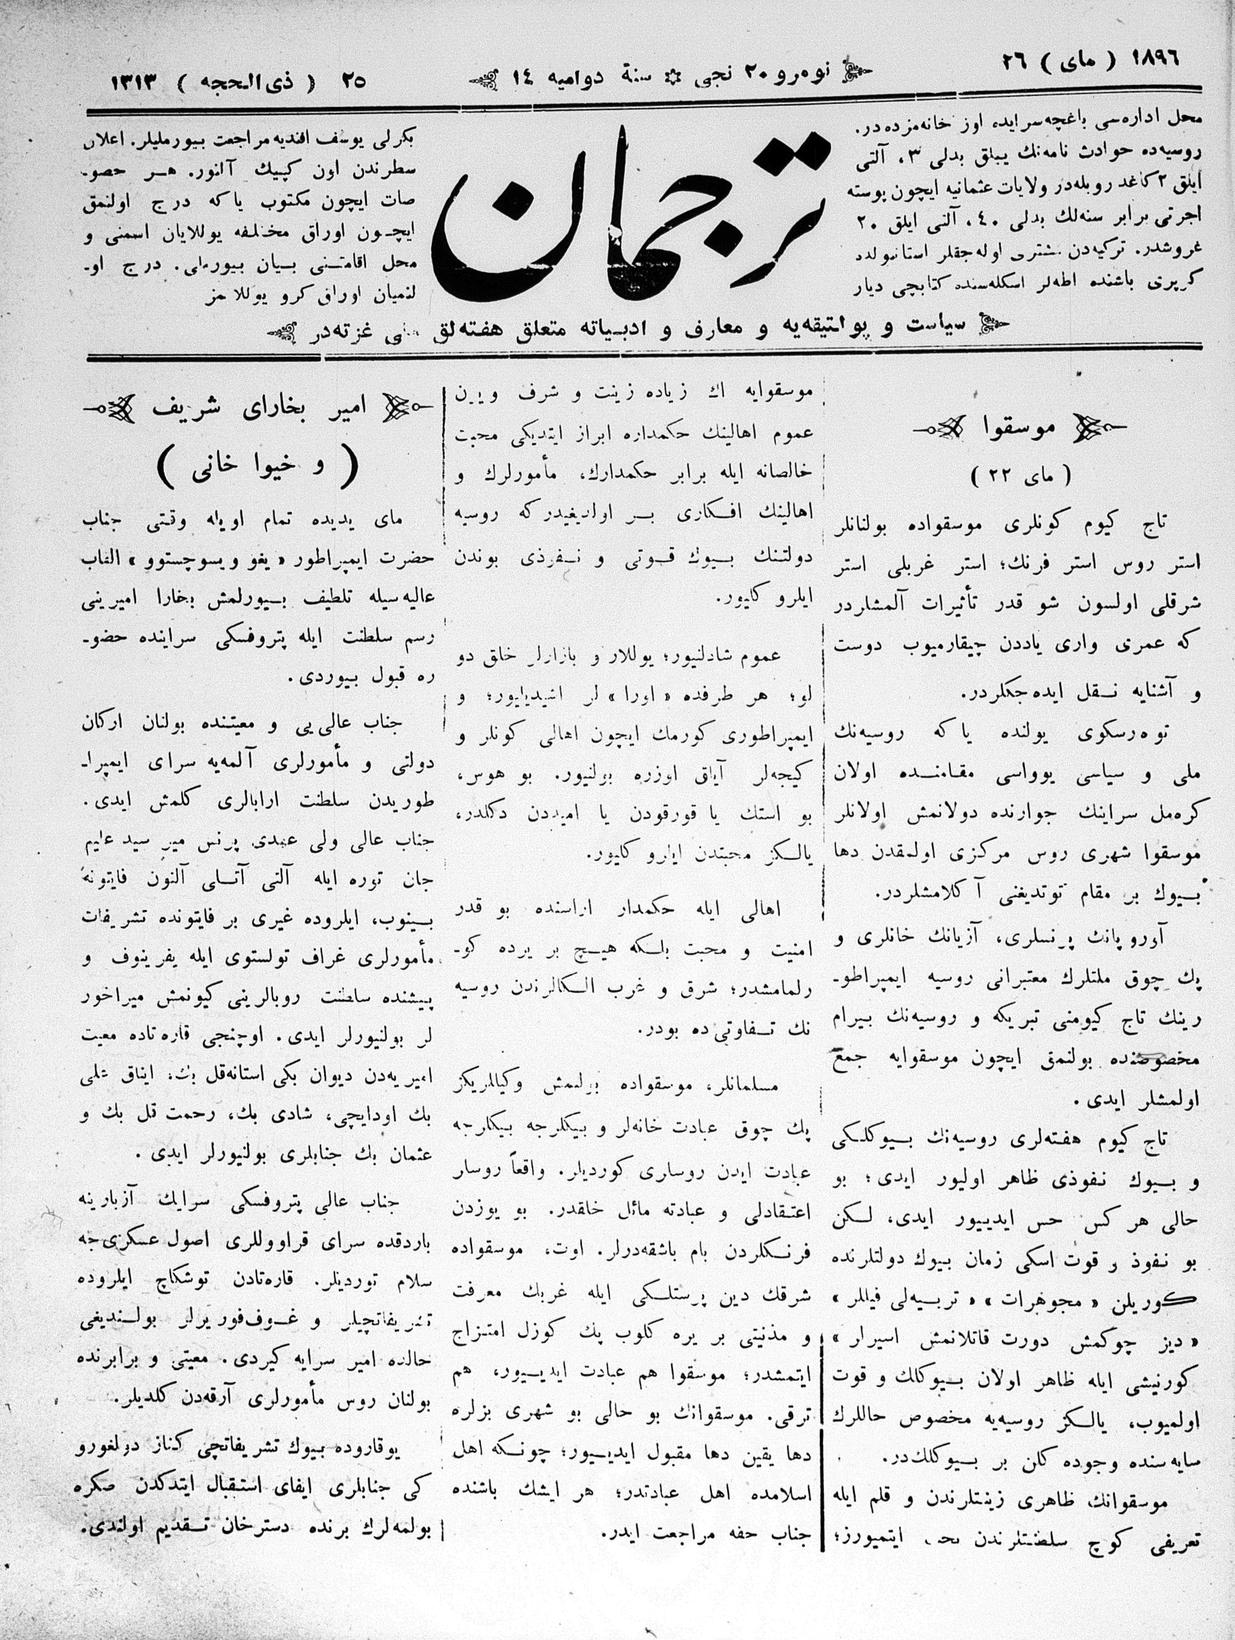 ١٨٩٦ ( مای ) ٢٦
نومرو ٢٠ نجی ✡ سنهٔ دوامیه ١٤
٢٥ ( ذی الحجه ) ١٣١٣
محل اداره‌سی باغچه‌سرایده اوز خانه‌مزده‌در.
روسیه‌ده حوادث نامه‌نك ییللق بدلی ٣، آلتی
ایلق ٢ كاغد روبله‌در ولایات عثمانیه ایچون پوسته
اجرتی برابر سنه‌لك بدلی ٤٠، آلتی ایلق ٢٠
غروشدر. تركیه‌دن مشتری اوله‌جقلر استانبولده
كوپری باشنده اطه‌لر اسكله‌سنده كتابچی دیار
ترجمان
بكرلی یوسف افندیه مراجعت بیورملیلر. اعلان
سطرندن اون كپیك آلنور. هـر حصو-
صات ایچون مكتوب یا كه درج اولنمق
ایچون اوراق مختلفه یوللایان اسمنی و
محل اقامتنی بیان بیورملی. درج او-
لنمیان اوراق كرو یوللانمز
سیاست و پولتیقه‌یه و معارف و ادبیاته متعلق هفته‌لق ملی غزته‌در
موسقوا
( مای ٢٢ )
تاج كیوم كونلری موسقواده بولنانلر
استر روس استر فرنك؛ استر غربلی استر
شرقلی اولسون شو قدر تأثیرات آلمشلردر
كه عمری واری یاددن چیقارمیوب دوست
و آشنایه نقل ایده‌جكلردر.
توه‌رسكوی یولنده یا كه روسیه‌نك
ملی و سیاسی یوواسی مقامنده اولان
كره‌مل سراینك جوارنده دولانمش اولانلر
موسقوا شهری روس مركزی اولمقدن دها
بیوك بر مقام توتدیغنی آكلامشلردر.
آوروپانك پرنسلری، آزیانك خانلری و
پك چوق ملتلرك معتبرانی روسیه ایمپراطو-
رینك تاج كیومنی تبریكه و روسیه‌نك بیرام
مخصوصنده بولنمق ایچون موسقوایه جمع
اولمشلر ایدی.
تاج كیوم هفته‌لری روسیه‌نك بیوكلكی
و بیوك نفوذی ظاهر اولیور ایدی؛ بو
حالی هر كس حس ایدییور ایدی، لكن
بو نفوذ و قوت اسكی زمان بیوك دولتلرنده
كوریلن « مجوهرات » « تربیه‌لی فیللر »
« دیز چوكمش دورت قاتلانمش اسیرلر »
كورنیشی ایله ظاهر اولان بیوكلك و قوت
اولمیوب، یالكز روسیه‌یه مخصوص حاللرك
سایه‌سنده وجوده كلن بر بیوكلك‌در.
موسقوانك ظاهری زینتلرندن و قلم ایله
تعریفی كوچ سلطنتلرندن بحث ایتمیورز؛
موسقوایه اك زیاده زینت و شرف ویرن
عموم اهالینك حكمداره ابراز ایتدیكی محبت
خالصانه ایله برابر حكمدارك، مأمورلرك و
اهالینك افكاری بـر اولدیغیدر كه روسیه
دولتنك بیوك قوتی و نفوذی بوندن
ایلرو كلیور.
عموم شادلنیور؛ یوللار و بازارلر خلق دو
لو؛ هر طرفده « اورا » لر اشیدیلیور؛ و
ایمپراطوری كورمك ایچون اهالی كونلر و
كیجه‌لر آیاق اوزره بولنیور. بو هوس،
بو استك یا قورقودن یا امیددن دكلدر،
یالكز محبتدن ایلرو كلیور.
اهالی ایله حكمدار اراسنده بو قدر
امنیت و محبت بلكه هیچ بر یرده كو-
رلمامشدر؛ شرق و غرب الكالرندن روسیه
نك تفاوتی ده بودر.
مسلمانلر، موسقواده بولنمش وكیللریكز
پك چوق عبادت خانه‌لر و بیكلرجه بیكلرجه
عبادت ایدن روسلری كوردیلر. واقعاً روسلر
اعتقادلی و عبادته مائل خلقدر. بو یوزدن
فرنكلردن بام باشقه‌درلر. اوت، موسقواده
شرقك دین پرستلكی ایله غربك معرفت
و مدنیتی بر یره كلوب پك كوزل امتزاج
ایتمشدر؛ موسقوا هم عبادت ایدییور، هم
ترقی. موسقوانك بو حالی بو شهری بزلره
دها یقین دها مقبول ایدییور؛ چونكه اهل
اسلامده اهل عبادتدر؛ هر ایشك باشنده
جناب حقه مراجعت ایدر.
امیر بخارای شریف
( و خیوا خانی )
مای یدیده تمام اویله وقتی جناب
حضرت ایمپراطور « یغو ویسوچستوو » القاب
عالیه‌سیله تلطیف بیورلمش بخارا امیرینی
رسم سلطنت ایله پتروفسكی سراینده حضو-
ره قبول بیوردی.
جناب عالی‌یی و معیتنده بولنان اركان
دولتی و مأمورلری آلمه‌یه سرای ایمپرا-
طوریدن سلطنت ارابالری كلمش ایدی.
جناب عالی ولی عهدی پرنس میر سید عالیم
جان توره ایله آلتی آتلی آلتون فایتونه
بینوب، ایلروده غیری بر فایتونده تشریفات
مأمورلری غراف تولستوی ایله یفرینوف و
پیشنده سلطنت روبالرینی كیونمش میراخور
لر بولنیورلر ایدی. اوچنجی قاره‌تاده معیت
امیریه‌دن دیوان بكی استانه‌قل بك، ایناق علی
بك اودایچی، شادی بك، رحمت قل بك و
عثمان بك جنابلری بولنیورلر ایدی.
جناب عالی پتروفسكی سرایك آزبارینه
باردقده سرای قراووللری اصول عسكری‌جه
سلام توردیلر. قاره‌تادن توشكاچ ایلروده
تشریفاتچیلر و غوف‌فوریرلر بولندیغی
حالده امیر سرایه كیردی. معیتی و برابرنده
بولنان روس مأمورلری آرقه‌دن كلدیلر.
یوقاروده بیوك تشریفاتچی كناز دولغورو
كی جنابلری ایفای استقبال ایتدكدن صكره
بولمه‌لرك برنده دسترخان تقدیم اولندی.